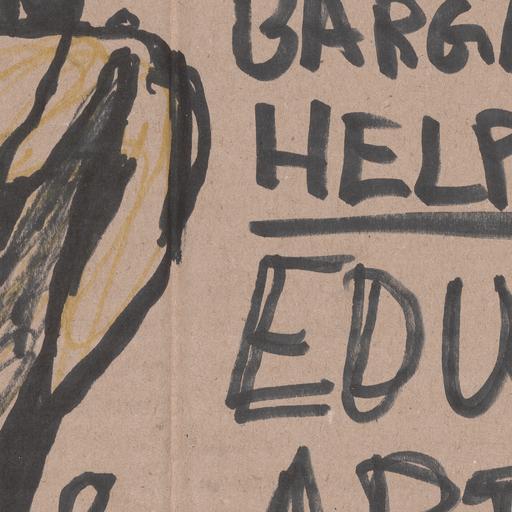 BARG
HELP
EDU
ART